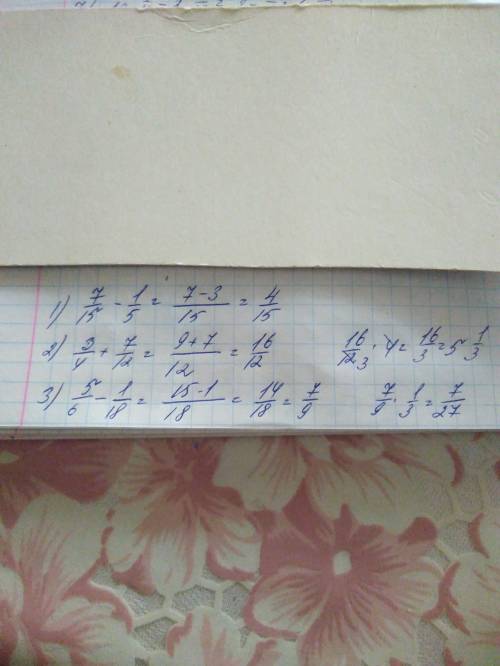 1) 7/15 - 1/5 = (7-3)/15 = 4/15
2) 3/4 + 7/12 = (9+7)/12 = 16/12   16/12 3 · 4 = 16/3 = 5 1/3
3) 5/6 - 1/18 = (15-1)/18 = 14/18 = 7/9   7/9 · 1/3 = 7/27